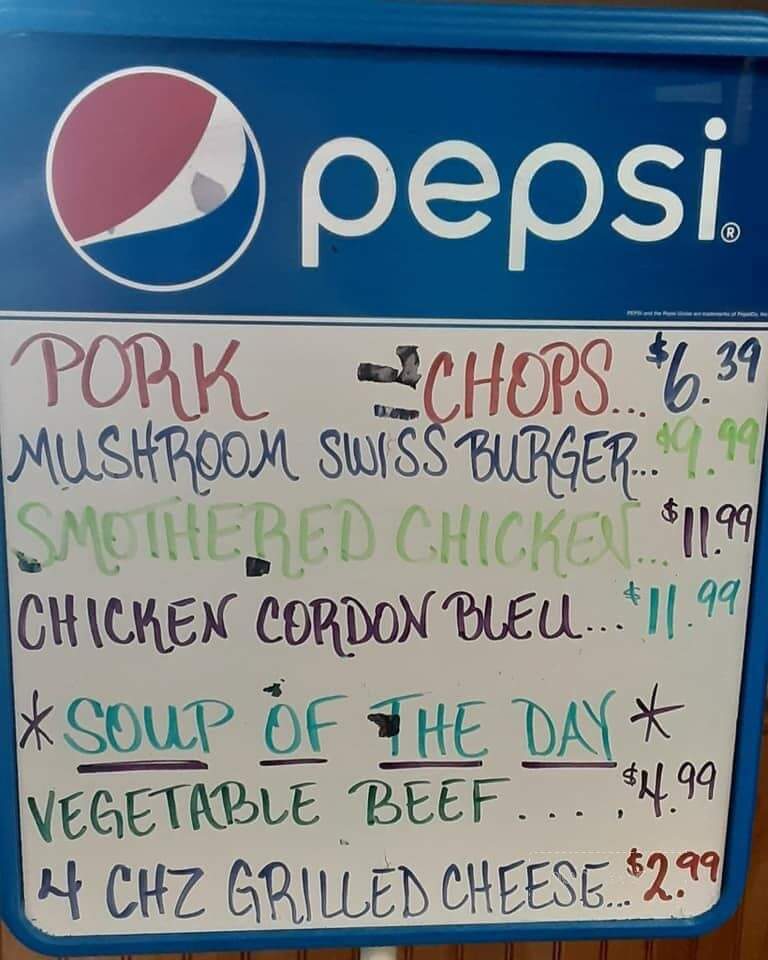 pepsi®
PORK CHOPS... $6.39
MUSHROOM SWISS BURGER... $9.99
SMOTHERED CHICKEN... $11.99
CHICKEN CORDON BLEU... $11.99
*SOUP OF THE DAY*
VEGETABLE BEEF.... $4.99
4 CHZ GRILLED CHEESE... $2.99